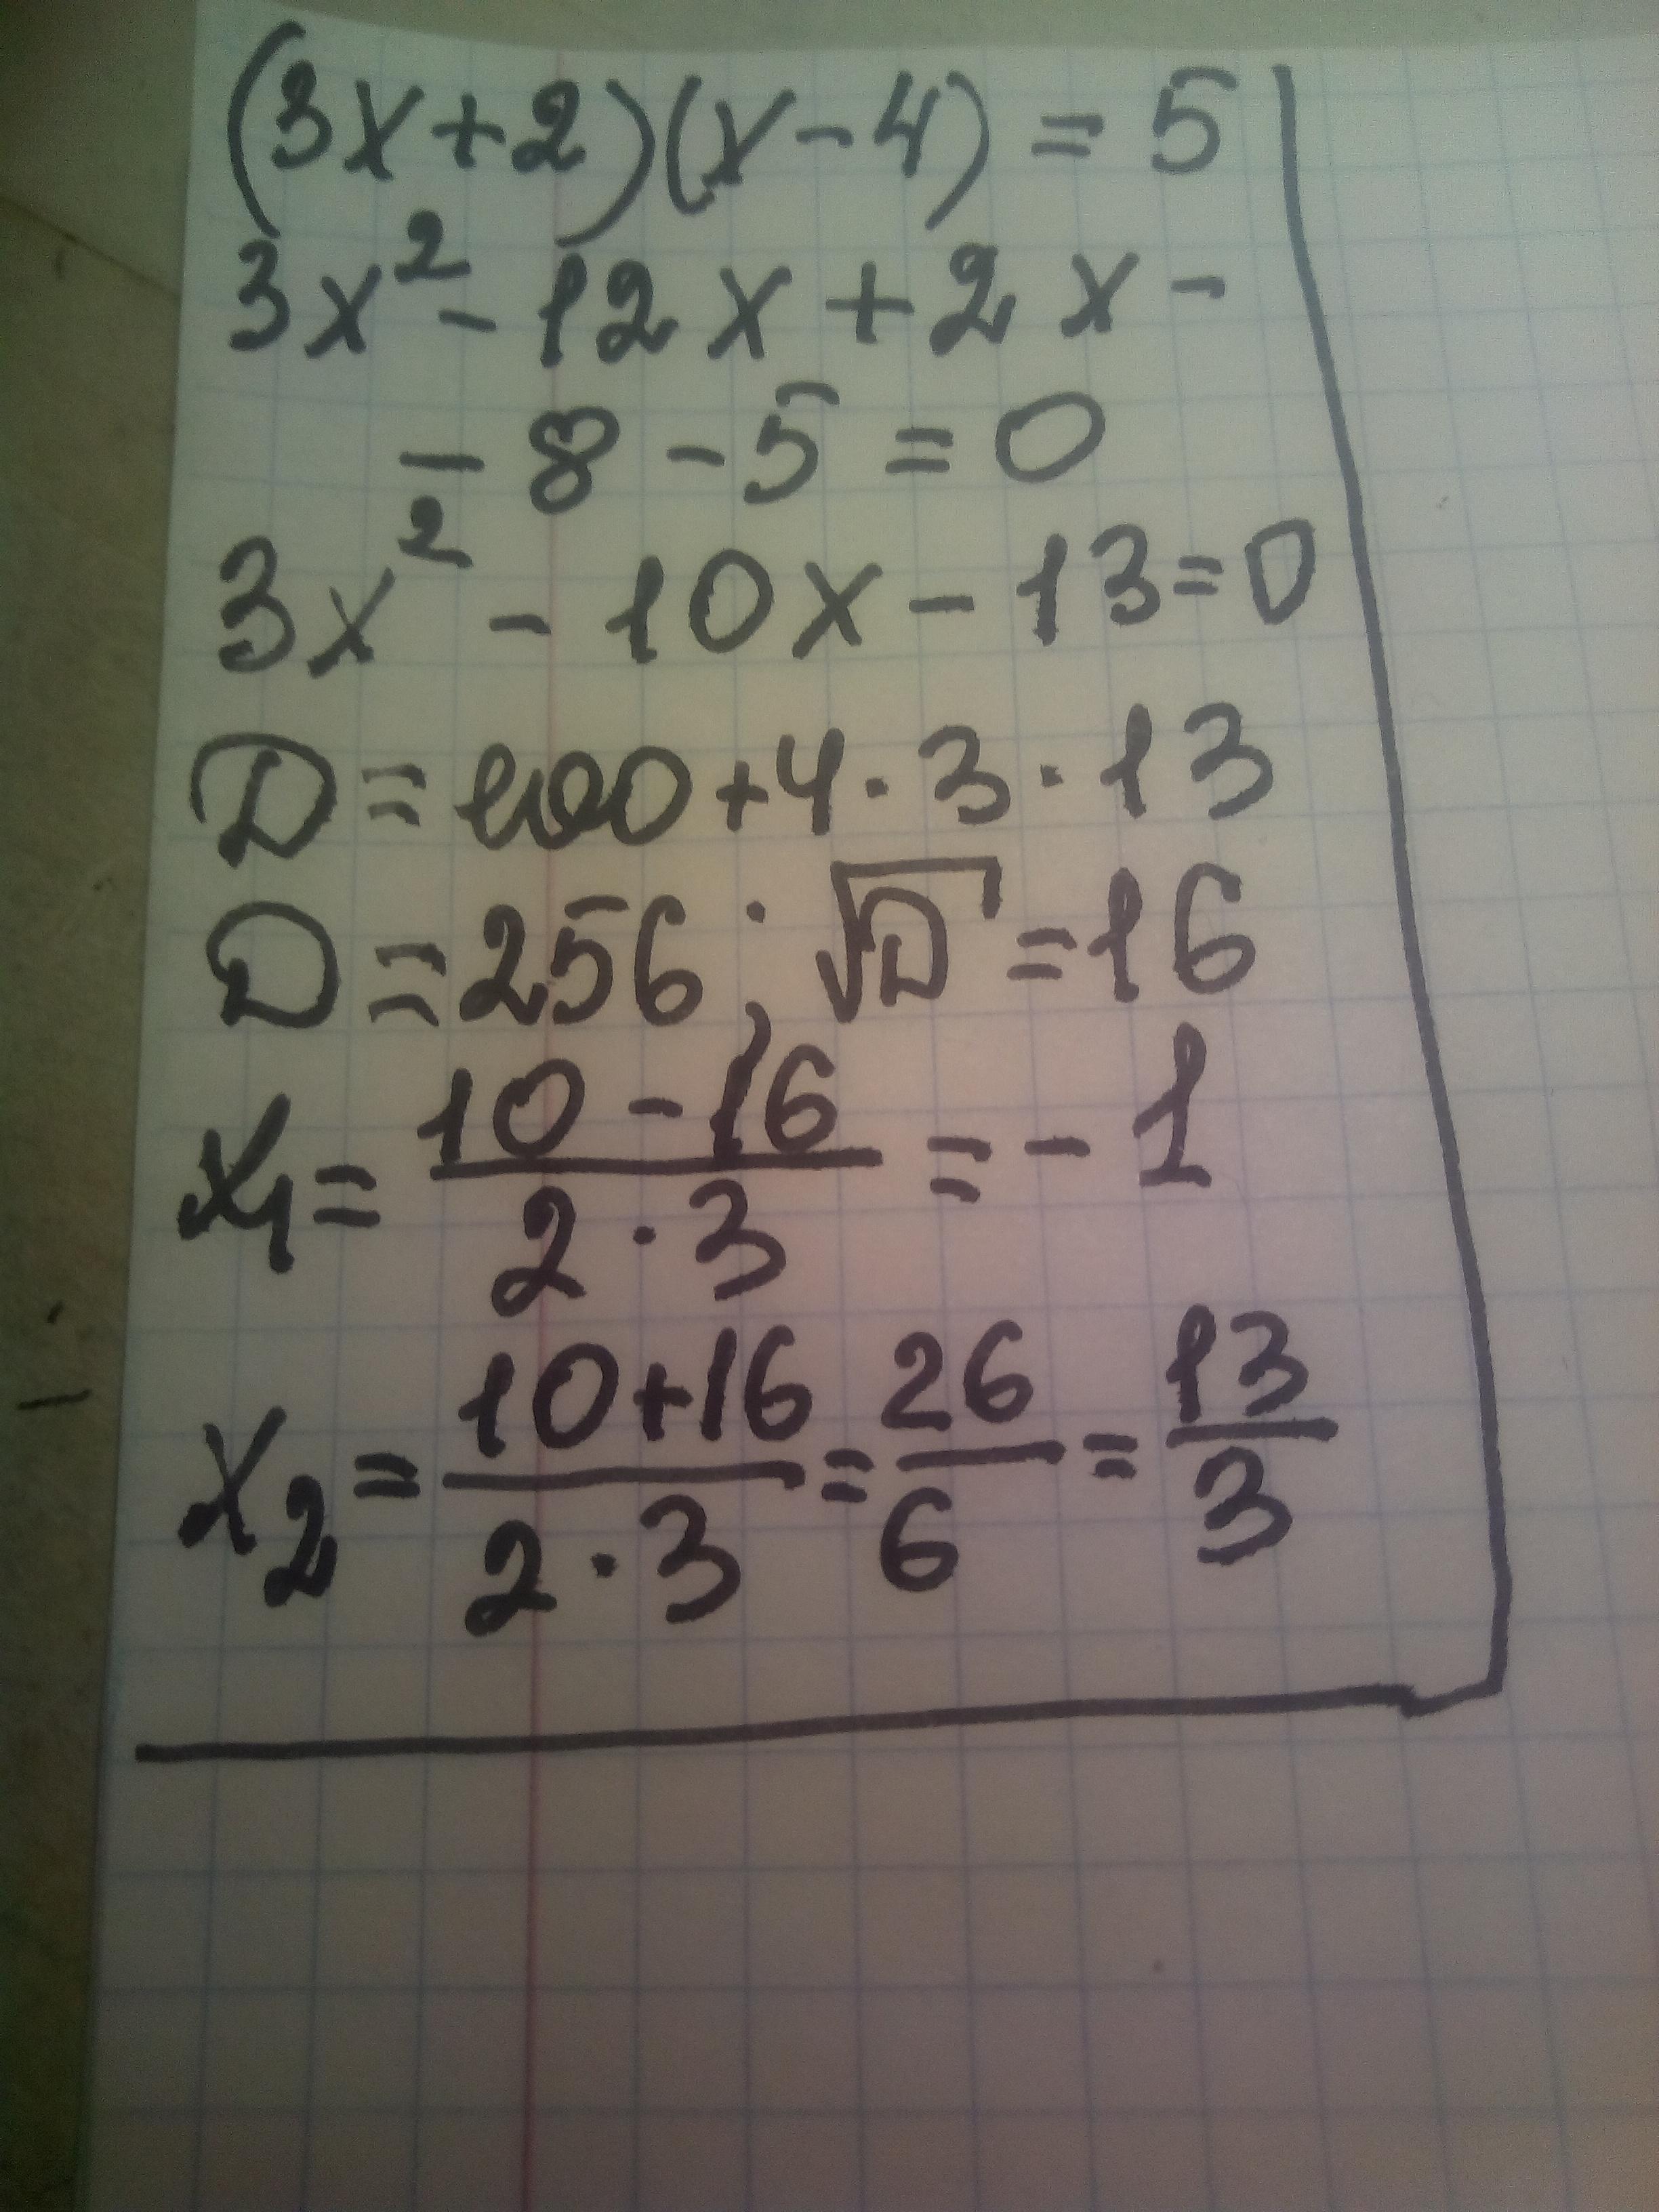 (3x+2)(x-4) = 5
3x² - 12x + 2x -
- 8 - 5 = 0
3x² - 10x - 13 = 0
D = 100 + 4 · 3 · 13
D = 256 ; √D = 16
x₁ = (10 - 16)/(2 · 3) = - 1
x₂ = (10+16)/(2 · 3) = 26/6 = 13/3